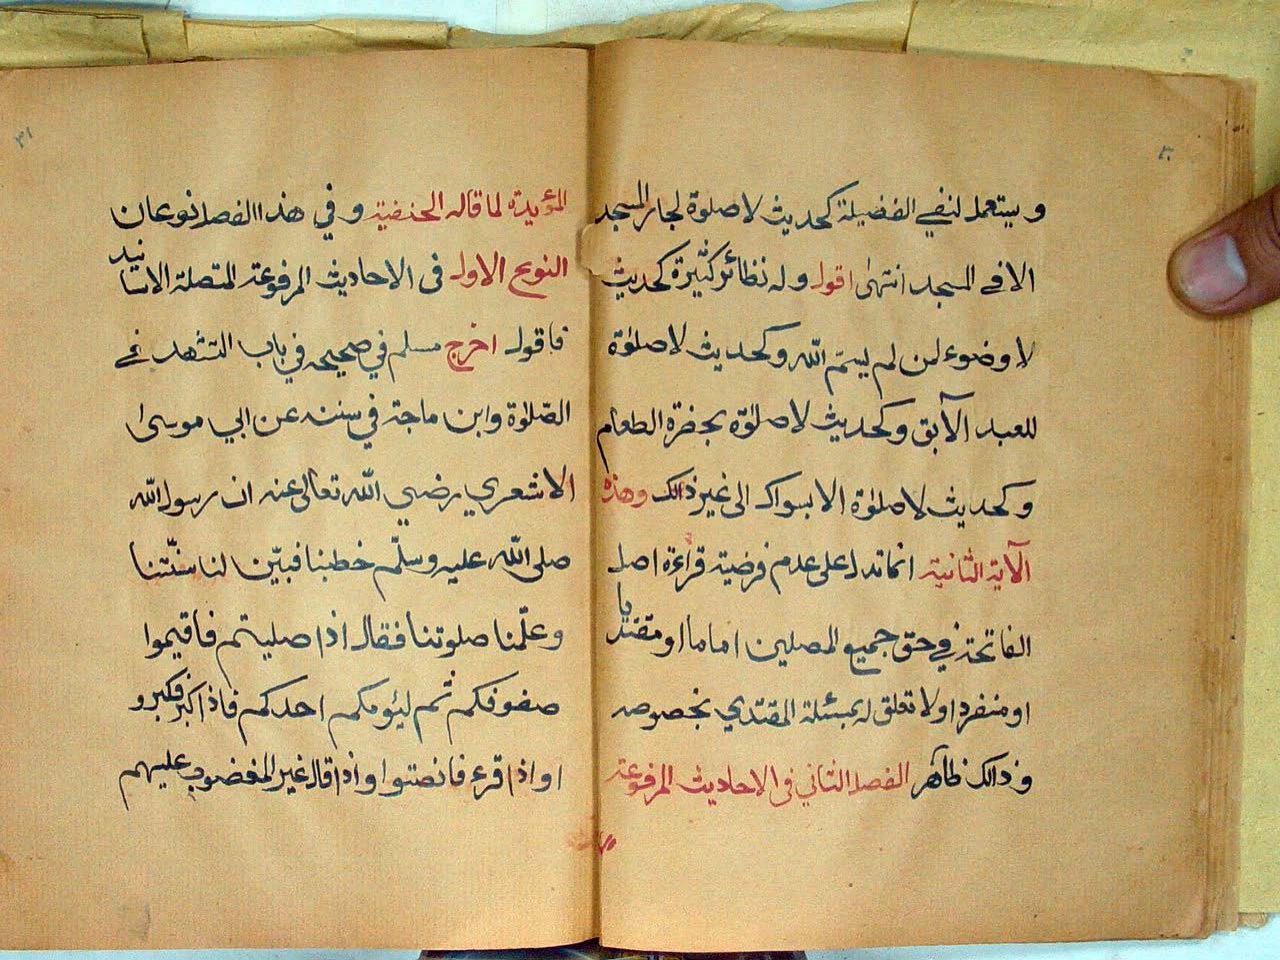 ٣٠
ويستعمل لنفي الفضيلة كحديث لا صلوة لجار المسجد
الا في المسجد انتهى اقول وله نظائر كثيرة كحديث
لا وضوء لمن لم يسمّ اللّه وكحديث لا صلوٰة
للعبد الآبق وكحديث لا صلوٰة بحضرة الطعام
وكحديث لا صلوٰة الا بسواك الى غير ذالك وهذه
الآية الثانية انما تدل على عدم فرضية قراءة اصل
الفاتحة في حق جميع المصلين اماما او مقتديا
او منفردا ولا تعلق له بمسئلة المقتدي بخصوصه
وذالك ظاهر الفصل الثاني في الاحاديث المرفوعة
٣١
المؤيدة لما قاله الحنفية وفي هذا الفصل نوعان
النوع الاول في الاحاديث المرفوعة المتصلة الاسانيد
فاقول اخرج مسلم في صحيحه في باب التشهد في
الصّلوٰة وابن ماجة في سننه عن ابي موسى
الاشعري رضي اللّه تعالى عنه ان رسول اللّه
صلى اللّه عليه وسلّم خطبنا فبيّن لنا سنّتنا
وعلّمنا صلوتنا فقال اذا صليتم فاقيموا
صفوفكم ثم ليؤمكم احدكم فاذا كبر فكبرو
او اذا قرء فانصتوا واذا قال غير المغضوب عليهم